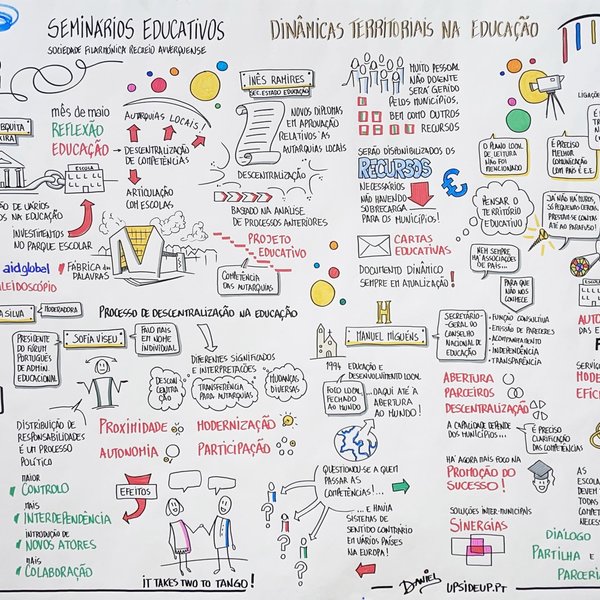 SEMINÁRIOS EDUCATIVOS
SOCIEDADE FILARMÓNICA RECREIO ALVERQUENSE
DINÂMICAS TERRITORIAIS NA EDUCAÇÃO
MÊS DE MAIO
REFLEXÃO
EDUCAÇÃO
ESCOLA
INVESTIMENTOS
NO PARQUE ESCOLAR
aidglobal
FÁBRICA DAS
PALAVRAS
AUTARQUIAS LOCAIS!
DESCENTRALIZAÇÃO
DE COMPETÊNCIAS
ARTICULAÇÃO
COM ESCOLAS
INÊS RAMIRES
SEC. ESTADO EDUCAÇÃO
NOVOS DIPLOMAS
EM APROVAÇÃO
RELATIVOS ÀS
AUTARQUIAS LOCAIS
DESCENTRALIZAÇÃO
BASEADO NA ANÁLISE
DE PROCESSOS ANTERIORES
PROJETO
EDUCATIVO
COMPETÊNCIA
DAS AUTARQUIAS
MUITO PESSOAL
NÃO DOCENTE
SERÁ GERIDO
PELOS MUNICÍPIOS,
BEM COMO OUTROS
RECURSOS
SERÃO DISPONIBILIZADOS OS
RECURSOS
NECESSÁRIOS
NÃO HAVENDO
SOBRECARGA
PARA OS MUNICÍPIOS!
CARTAS
EDUCATIVAS
DOCUMENTO DINÂMICO
SEMPRE EM ATUALIZAÇÃO!
O PLANO LOCAL
DE LEITURA
NÃO FOI
MENCIONADO
É PRECISO
MELHOR
COMUNICAÇÃO
COM PAIS E E.E.
PENSAR O
TERRITÓRIO
EDUCATIVO
NEM SEMPRE
HÁ ASSOCIAÇÕES
DE PAIS...
PARA QUE
NÃO NOS
CONHECE
MODERADORA
PROCESSO DE DESCENTRALIZAÇÃO NA EDUCAÇÃO
PRESIDENTE
DO FÓRUM
PORTUGUÊS
DE ADMIN.
EDUCACIONAL
SOFIA VISEU
FALO MAIS
EM NOME
INDIVIDUAL
DIFERENTES SIGNIFICADOS
E INTERPRETAÇÕES
DESCON
CENTRA
ÇÃO
TRANSFERÊNCIA
PARA AUTARQUIAS
MUDANÇAS
DIVERSAS
DISTRIBUIÇÃO DE
RESPONSABILIDADES
É UM PROCESSO
POLÍTICO
PROXIMIDADE
MODERNIZAÇÃO
AUTONOMIA
PARTICIPAÇÃO
MAIOR
CONTROLO
MAIS
INTERDEPENDÊNCIA
INTRODUÇÃO DE
NOVOS ATORES
MAIS
COLABORAÇÃO
EFEITOS
IT TAKES TWO TO TANGO!
H
MANUEL MIGUÉNS
SECRETÁRIO-
-GERAL DO
CONSELHO
NACIONAL DE
EDUCAÇÃO
FUNÇÃO CONSULTIVA
EMISSÃO DE PARECERES
ACOMPANHAMENTO
INDEPENDÊNCIA
TRANSPARÊNCIA
EDUCAÇÃO E
DESENVOLVIMENTO LOCAL
FOCO LOCAL
FECHADO
AO MUNDO
...DAQUI ATÉ À
ABERTURA
AO MUNDO!
ABERTURA
PARCEIROS
DESCENTRALIZAÇÃO
A CAPACIDADE DEPENDE
DOS MUNICÍPIOS...
É PRECISO
CLARIFICAÇÃO
DAS COMPETÊNCIAS
QUESTIONOU-SE A QUEM
PASSAR AS
COMPETÊNCIAS!...
...E HAVIA
SISTEMAS DE
SENTIDO CONTRÁRIO
EM VÁRIOS PAÍSES
NA EUROPA!
HÁ AGORA MAIS FOCO NA
PROMOÇÃO DO
SUCESSO!
SOLUÇÕES INTER-MUNICIPAIS
SINERGIAS
DIÁLOGO
PARTILHA E
DANIEL
UPSIDEUP.PT